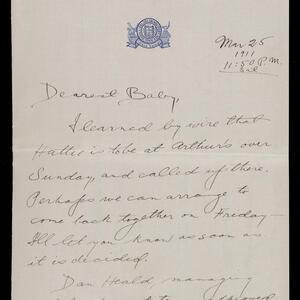 Mar 25
1911
11:50 P.M.
Dearest Baby,
I learned by wire that
Hattie is to be at Arthur's over
Sunday, and called up there.
Perhaps we can arrange to
come back together on Friday—
I'll let you know as soon as
it is decided.
Dan Heald, managing